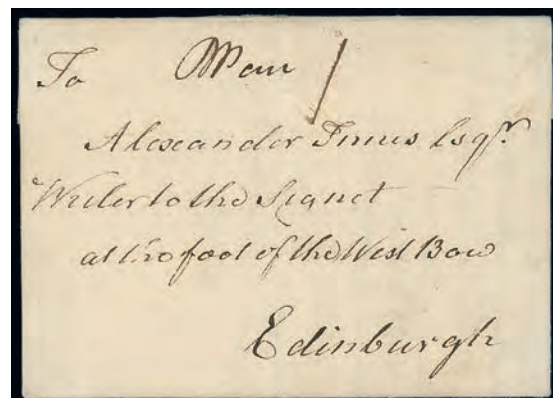 To
Alexander Innes Esqr.
Writer to the Signet
at the foot of the West Bow
Edinburgh